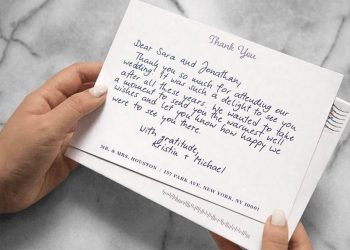 Thank You
Dear Sara and Jonathan,
Thank you so much for attending our
wedding! It was such a delight to see you
after all these years. We wanted to take
a moment to send you the warmest well
wishes and let you know how happy we
were to see you there.
With gratitude,
Kristin + Michael
MR. & MRS. HOUSTON | 157 PARK AVE, NEW YORK, NY 10001